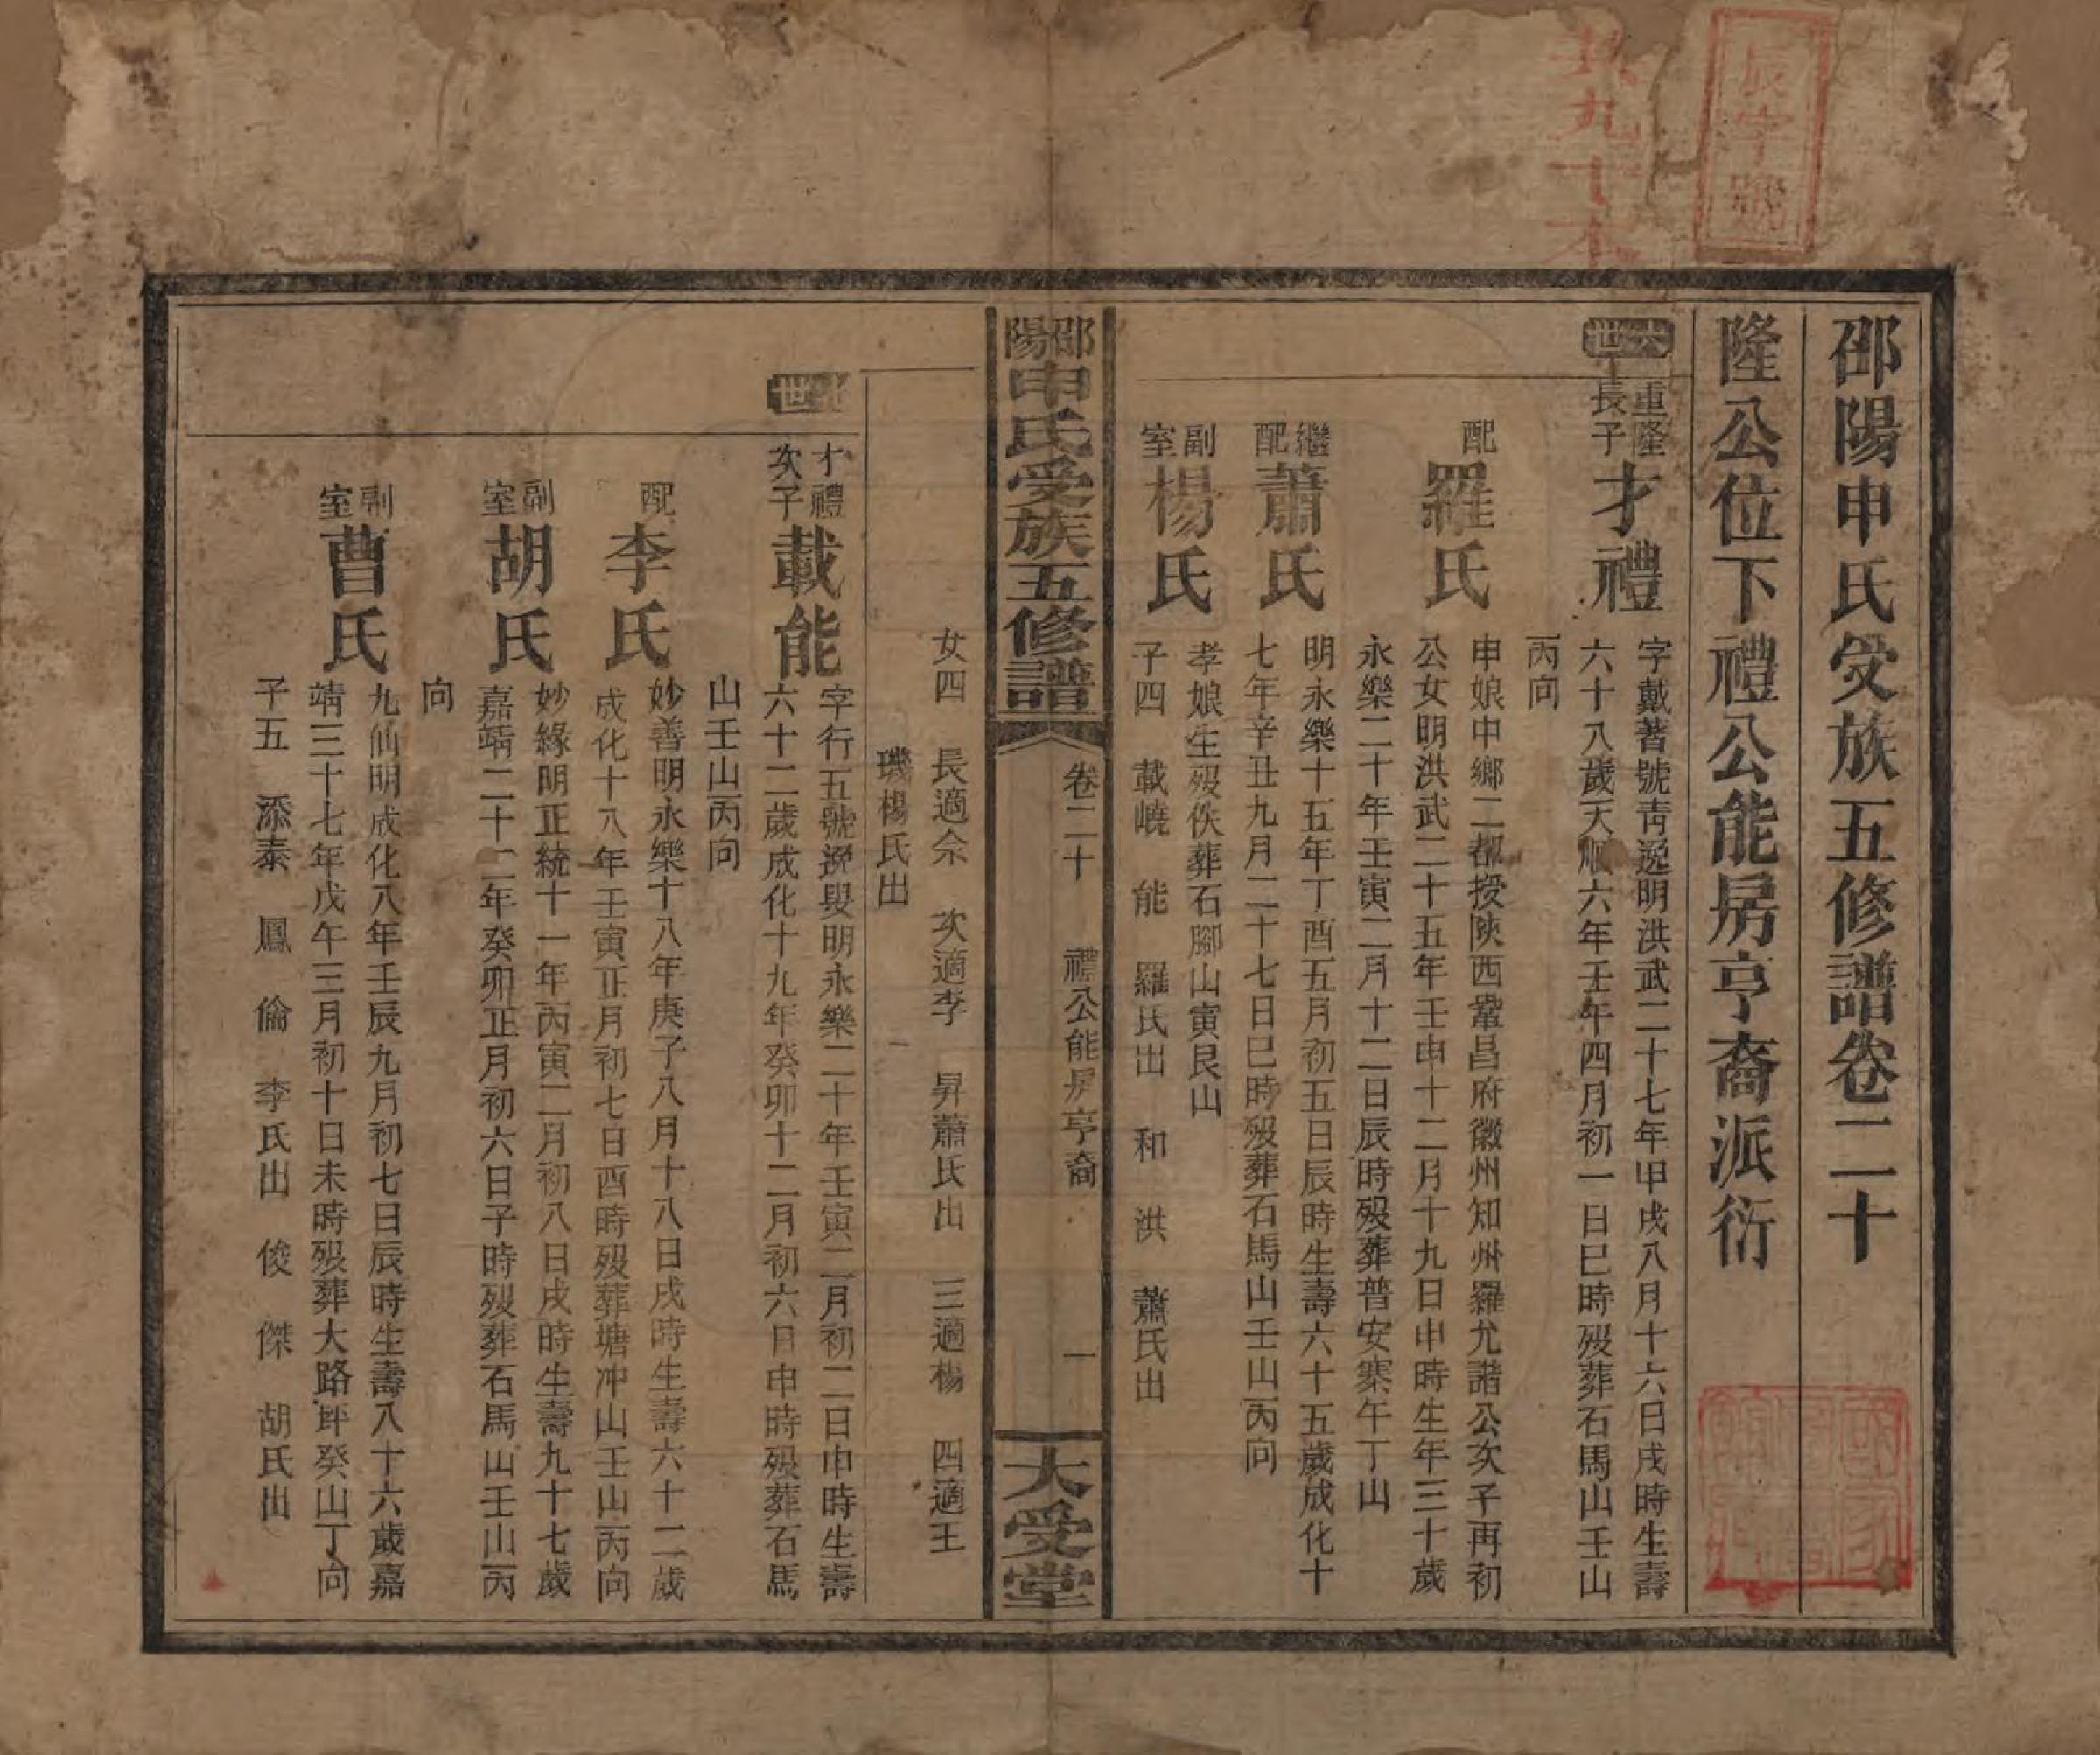 辰字號
共九十本
邵陽申氏受族五修譜卷二十
隆公位下禮公能房亨裔派衍
六世
重隆長子
才禮
字戴著號青逸明洪武二十七年甲戌八月十六日戌時生壽
六十八歲天順六年壬午四月初一日巳時歿葬石馬山壬山
丙向
配
羅氏
申娘中鄉二都授陝西鞏昌府徽州知州羅允諧公次子再初
公女明洪武二十五年壬申十二月十九日申時生年三十歲
永樂二十年壬寅二月十二日辰時歿葬普安寨午丁山
繼配
蕭氏
明永樂十五年丁酉五月初五日辰時生壽六十五歲成化十
七年辛丑九月二十七日巳時歿葬石馬山壬山丙向
副室
楊氏
孝娘生歿佚葬石腳山寅艮山
子四 載嶢 能 羅氏出 和 洪 蕭氏出
邵陽申氏受族五修譜
卷二十 禮公能房亨裔 一
大受堂
女四 長適佘 次適李 昇蕭氏出 三適楊 四適王
璣楊氏出
世
才禮次子
載能
字行五號逸叟明永樂二十年壬寅二月初二日申時生壽
六十二歲成化十九年癸卯十二月初六日申時歿葬石馬
山壬山丙向
配
李氏
妙善明永樂十八年庚子八月十八日戌時生壽六十二歲
成化十八年壬寅正月初七日酉時歿葬塘沖山壬山丙向
副室
胡氏
妙緣明正統十一年丙寅二月初八日戌時生壽九十七歲
嘉靖二十二年癸卯正月初六日子時歿葬石馬山壬山丙
向
副室
曹氏
九仙明成化八年壬辰九月初七日辰時生壽八十六歲嘉
靖三十七年戊午三月初十日未時歿葬大路坪癸山丁向
子五 添泰 鳳 倫 李氏出 俊 傑 胡氏出